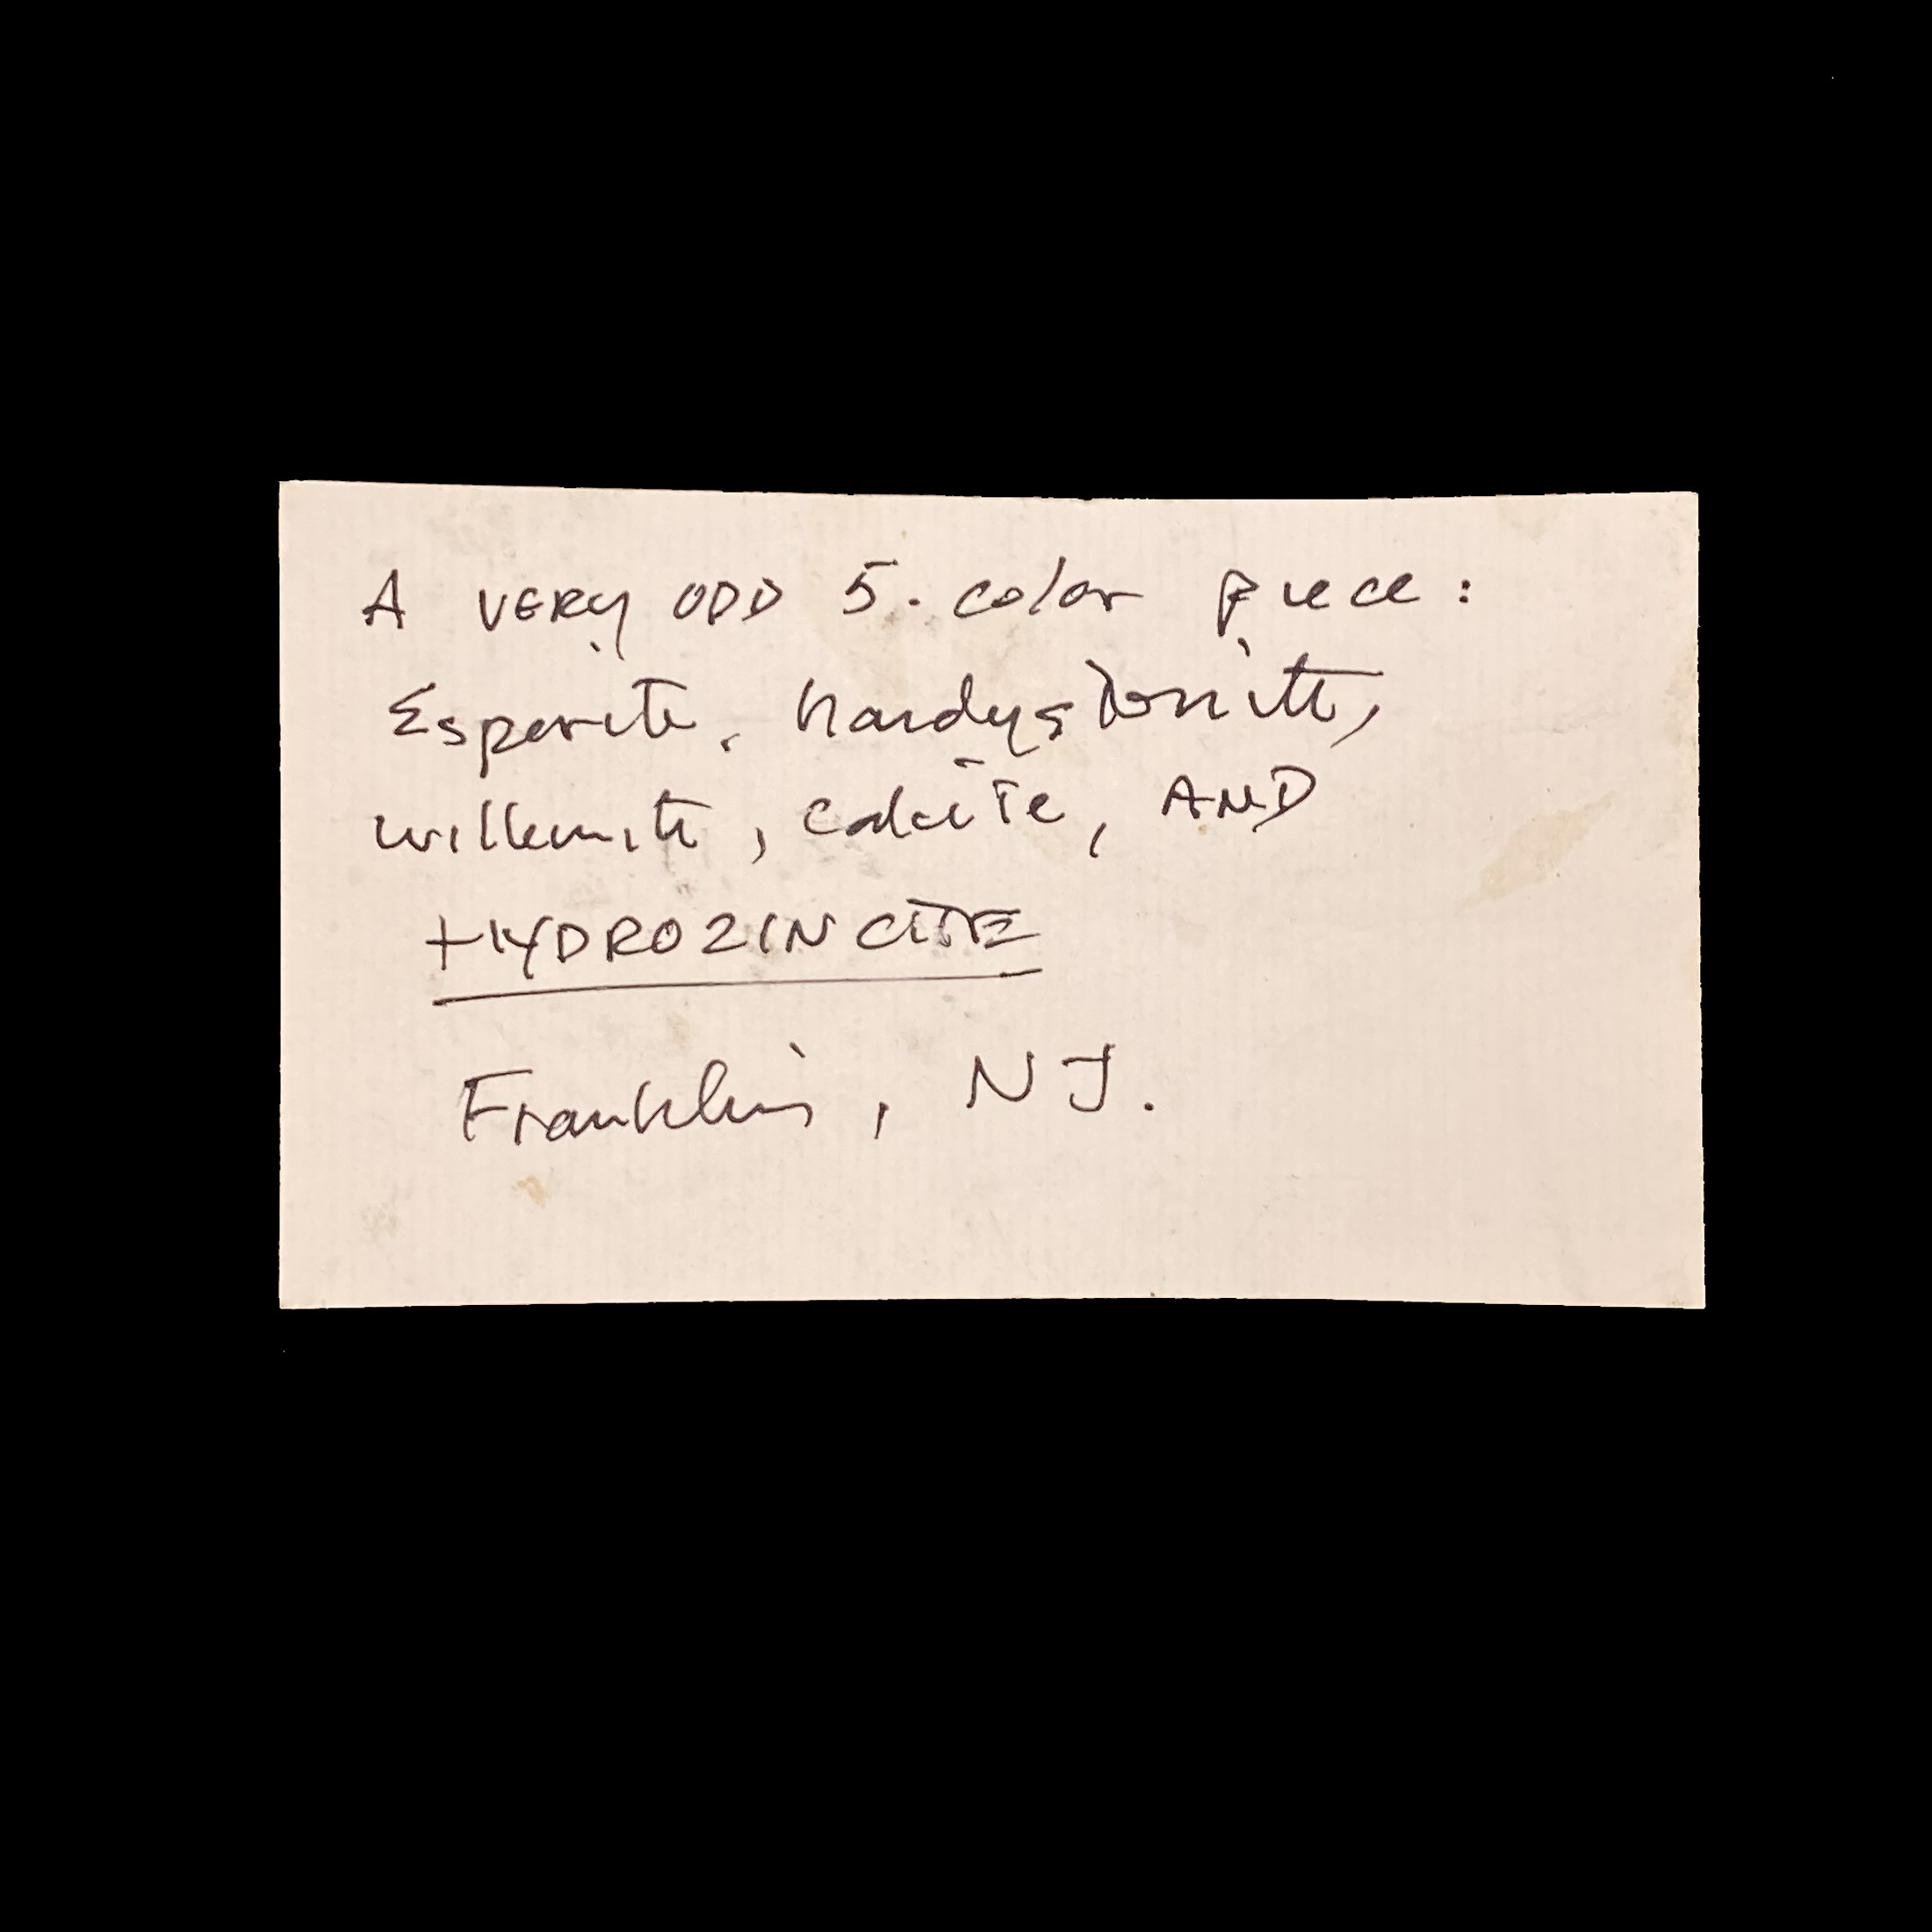 A VERY ODD 5-color piece:
Esperite, hardystonite,
willemite, calcite, AND
HYDROZINCITE
Franklin, NJ.